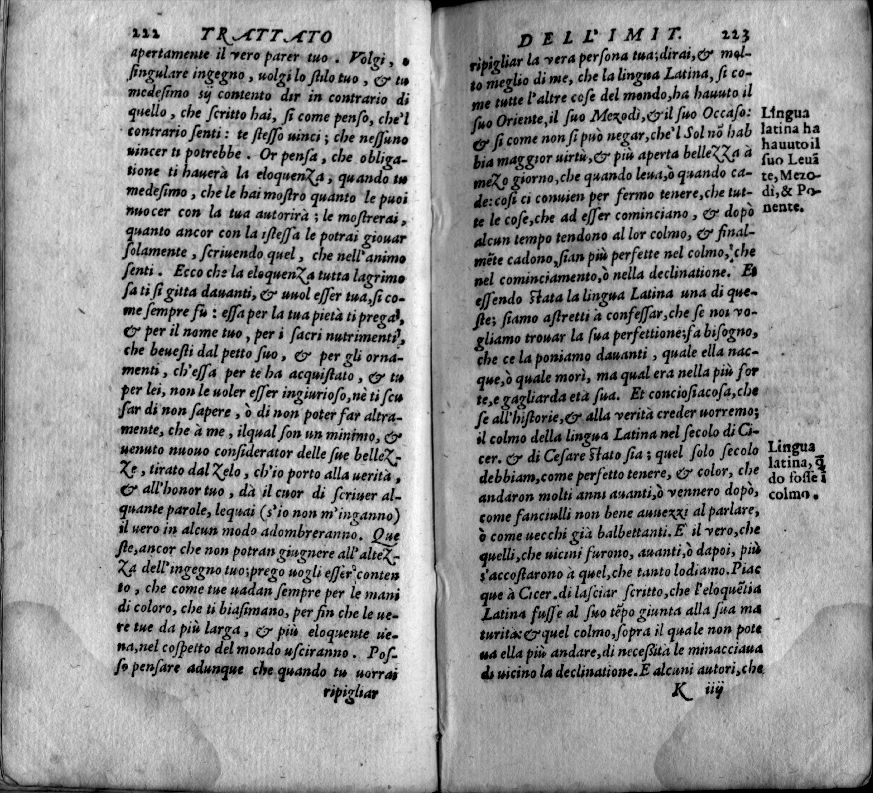 222 TRATTATO
apertamente il vero parer tuo . Volgi , o
ſingulare ingegno , uolgi lo ſtilo tuo , & tu
medeſimo sÿ contento dir in contrario di
quello , che ſcritto hai, ſi come penſo, che'l
contrario ſenti : te ſteſſo uinci ; che neſſuno
uincer ti potrebbe . Or penſa , che obliga-
tione ti hauerà la eloquenZa , quando tu
medeſimo , che le hai moſtro quanto le puoi
nuocer con la tua autorirà ; le moſtrerai,
quanto ancor con la iſteſſa le potrai giouar
ſolamente , ſcriuendo quel , che nell'animo
ſenti . Ecco che la eloquenZa tutta lagrimo
ſa ti ſi gitta dauanti, & uuol eſſer tua, ſi co-
me ſempre fù : eſſa per la tua pietà ti prega,
& per il nome tuo , per i ſacri nutrimenti,
che beueſti dal petto ſuo , & per gli orna-
menti , ch'eſſa per te ha acquiſtato , & tu
per lei, non le uoler eſſer ingiurioſo, nè ti ſcu
ſar di non ſapere , ò di non poter far altra-
mente, che à me , ilqual ſon un minimo, &
uenuto nuouo conſiderator delle ſue belleZ-
Ze , tirato dal Zelo, ch'io porto alla uerità ,
& all'honor tuo , dà il cuor di ſcriuer al-
quante parole, lequai (s'io non m'inganno)
il uero in alcun modo adombreranno. Que
ſte, ancor che non potran giugnere all'alteZ-
Za dell'ingegno tuo; prego uogli eſſer conten
to , che come tue uadan ſempre per le mani
di coloro, che ti biaſimano, per fin che le ue-
re tue da più larga , & più eloquente ue-
na, nel coſpetto del mondo uſciranno . Poſ-
ſo penſare adunque che quando tu uorrai
ripigliar
DELL'IMIT. 223
ripigliar la vera perſona tua; dirai, & mol-
to meglio di me, che la lingua Latina, ſi co-
me tutte l'altre coſe del mondo, ha hauuto il
ſuo Oriente, il ſuo Mezodì, & il ſuo Occaſo:
& ſi come non ſi può negar, che'l Sol nõ hab
bia maggior uirtù, & più aperta belleZZa à
meZo giorno, che quando leua, ò quando ca-
de: coſi ci conuien per fermo tenere, che tut-
te le coſe, che ad eſſer cominciano , & dopò
alcun tempo tendono al lor colmo, & final-
mẽte cadono, ſian più perfette nel colmo, che
nel cominciamento, ò nella declinatione. Et
eſſendo ſtata la lingua Latina una di que-
ſte; ſiamo aſtretti à confeſſar, che ſe noi vo-
gliamo trouar la ſua perfettione; fa biſogno,
che ce la poniamo dauanti , quale ella nac-
que, ò quale morì, ma qual era nella più for
te, e gagliarda età ſua. Et conciosiacoſa, che
ſe all'hiſtorie, & alla verità creder uorremo;
il colmo della lingua Latina nel ſecolo di Ci-
cer. & di Ceſare ſtato ſia ; quel ſolo ſecolo
debbiam, come perfetto tenere, & color, che
andaron molti anni auanti, ò vennero dopò,
come fanciulli non bene auuezzi al parlare,
ò come uecchi già balbettanti. E il vero, che
quelli, che uicini furono, auanti, ò dapoi, più
s'accoſtarono à quel, che tanto lodiamo. Piac
que à Cicer. di laſciar ſcritto, che l'eloquẽtia
Latina fuſſe al ſuo tẽpo giunta alla ſua ma
turità: & quel colmo, ſopra il quale non pote
ua ella più andare, di neceſſità le minacciaua
di uicino la declinatione. E alcuni autori, che
K iiij
Lingua
latina ha
hauuto il
ſuo Leuã
te, Mezo-
di, & Po-
nente.
Lingua
latina, q̃
do foſſe ĩ
colmo.